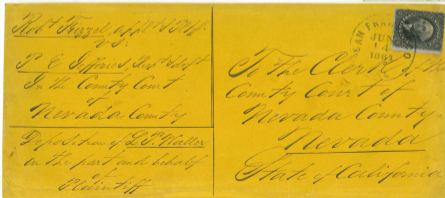 Robt
vs.
In the County Court
of
Nevada County
Deposition of L. M. Waller
on the part and behalf
of
Plaintiff
SAN FRAN
JUN
14
To the Clerk of the
County Court of
Nevada County
Nevada
State of California